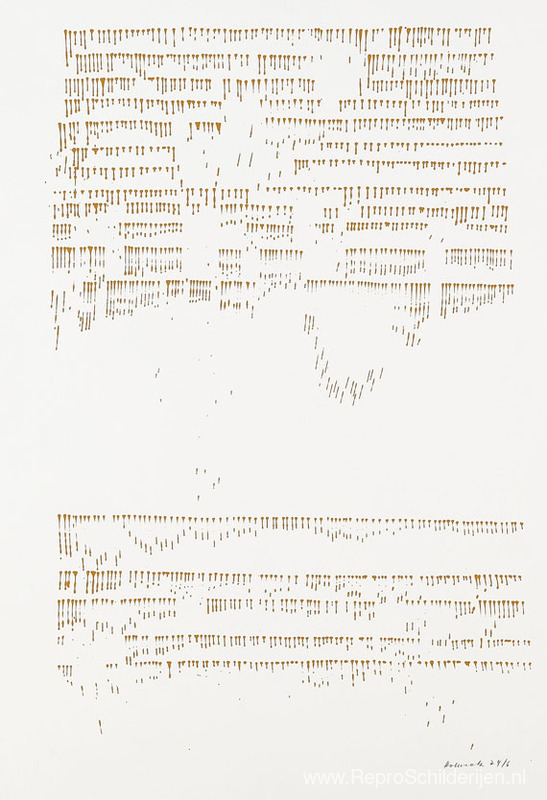 24/6
www.ReproSchilderijen.nl